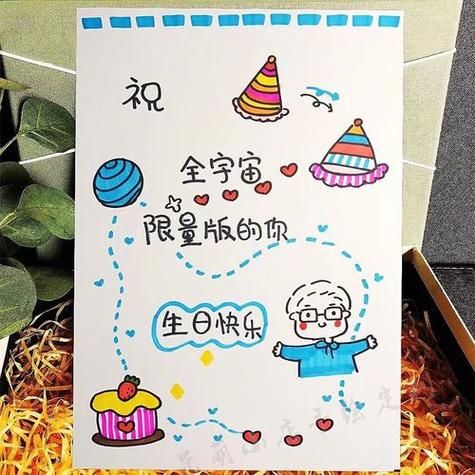 祝
全宇宙
限量版的你
生日快乐